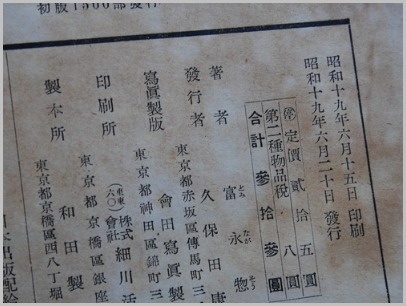 初版1500部發行
昭和十九年六月十五日 印刷
昭和十九年六月二十日 發行
㊞定價貳拾五圓
第二種物品稅 八圓
合計參拾參圓
著者 富永惣
とみ なが そう
發行者 久保田康
東京都赤坂區傳馬町三
寫眞製版 會田寫眞製
東京都神田區錦町三
印刷所 (東東六〇)株式會社細川活
東京都京橋區銀座
製本所 和田製
東京都京橋區西八丁堀
日本出版配給